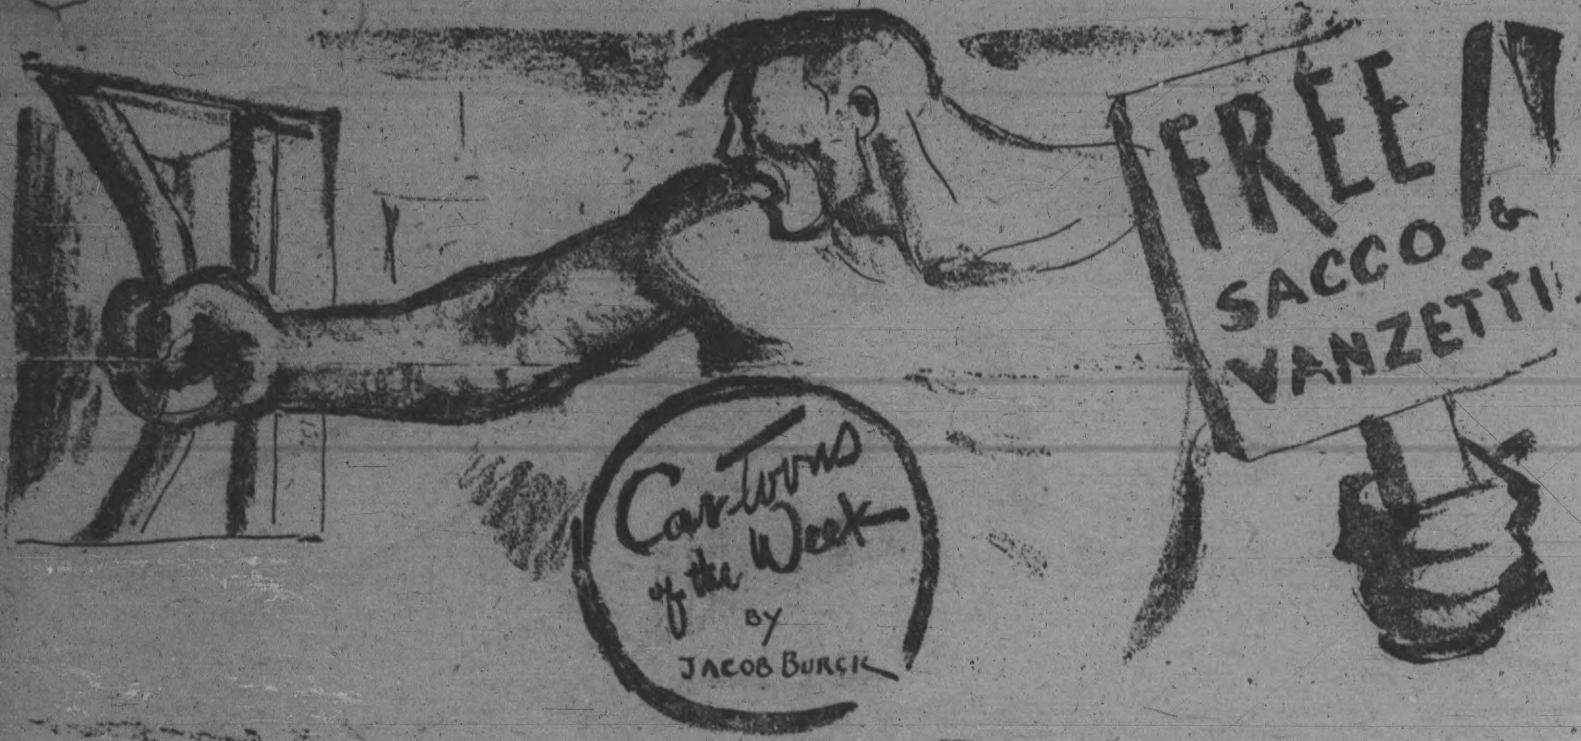 FREE!
SACCO &
VANZETTI
Cartoons
of the Week
BY
JACOB BURCK